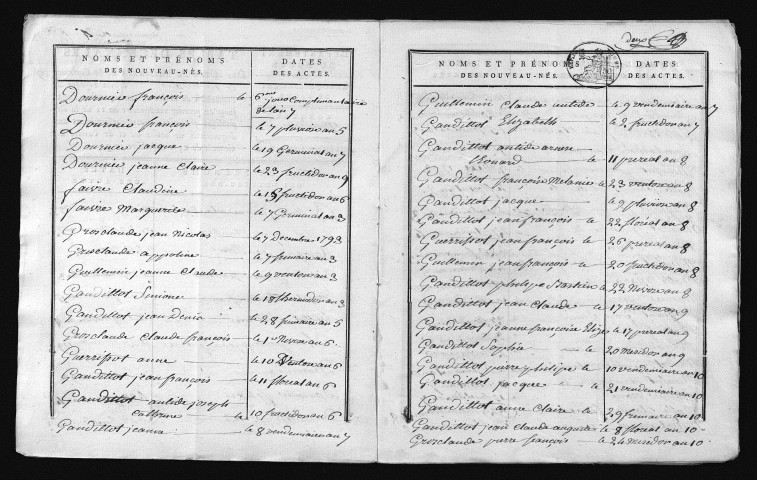 NOMS ET PRÉNOMS
DES NOUVEAU-NÉS.
DATES
DES ACTES.
Dournier françois le 6me jour complementaire
de l'an 7
Dournier françois le 7 pluviose an 5
Dournier jacque le 19 Germinal an 7
Dournier jeanne Claire le 23 fructidor an 9
faivre Claudine le 15 fructidor an 6
faivre Marguerite le 7 Germinal an 3
Grosclaude jean Nicolas le 7 Decembre 1793
Grosclaude appoline le 7 frimaire an 3
Guillemin jeanne Claude le 9 ventose an 3
Gandittot Simone le 18 thermidor an 3
Gandittot jean Denis le 28 frimaire an 5
Grosclaude Claude françois le 1er Nivose an 6
Guerrissot anne le 10 Ventose an 6
Gandittot jean françois le 11 floreal an 6
Gandittot antide joseph
Catherine le 10 fructidor an 6
Gandittot jeanne le 8 vendemiaire an 7
deux
NOMS ET PRÉNOMS
DES NOUVEAU-NÉS.
DATES
DES ACTES.
Guillemin Claude antide le 9 vendemiaire an 7
Gandittot Elizabeth le 2 fructidor an 7
Gandittot antide
le 11 prereal an 8
Gandittot françoise Melanie le 23 ventose an 8
Gandittot jacque le 9 pluviose an 8
Gandittot jean françois le 22 floreal an 8
Guerrissot jean françois le 26 prereal an 8
Guillemin jean françois le 20 fructidor an 8
Gandittot philippe le 22 Nivose an 8
Gandittot jean Claude le 17 ventose an 9
Gandittot jeanne françoise le 17 prereal an 9
Gandittot Sophie le 20 Messidor an 9
Gandittot pierre philipe le 10 vendemiaire an 10
Gandittot jacque le 21 vendemiaire an 10
Gandittot anne Claire le 29 frimaire an 10
Gandittot jean Claude auguste le 8 floreal an 10
Grosclaude pierre françois le 24 Messidor an 10